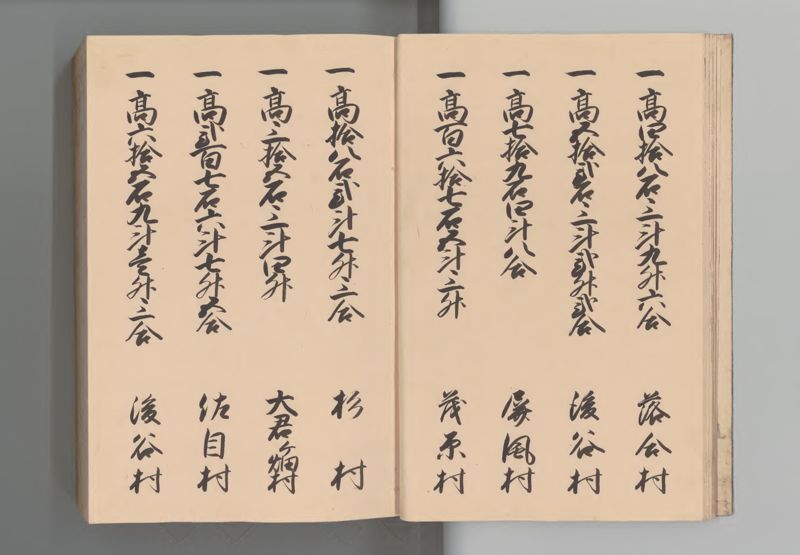 一高四拾八石三斗九升六合 落合村
一高五拾弐石三斗弐升弐合 後谷村
一高七拾九石四斗八合 屏風村
一高百六拾七石五斗三升 茂原村
一高拾八石弐斗七升三合 杉村
一高三拾五石三斗四升 大君ヶ畑村
一高弐百七石六斗七升五合 佐目村
一高六拾五石九斗壱升三合 後谷村